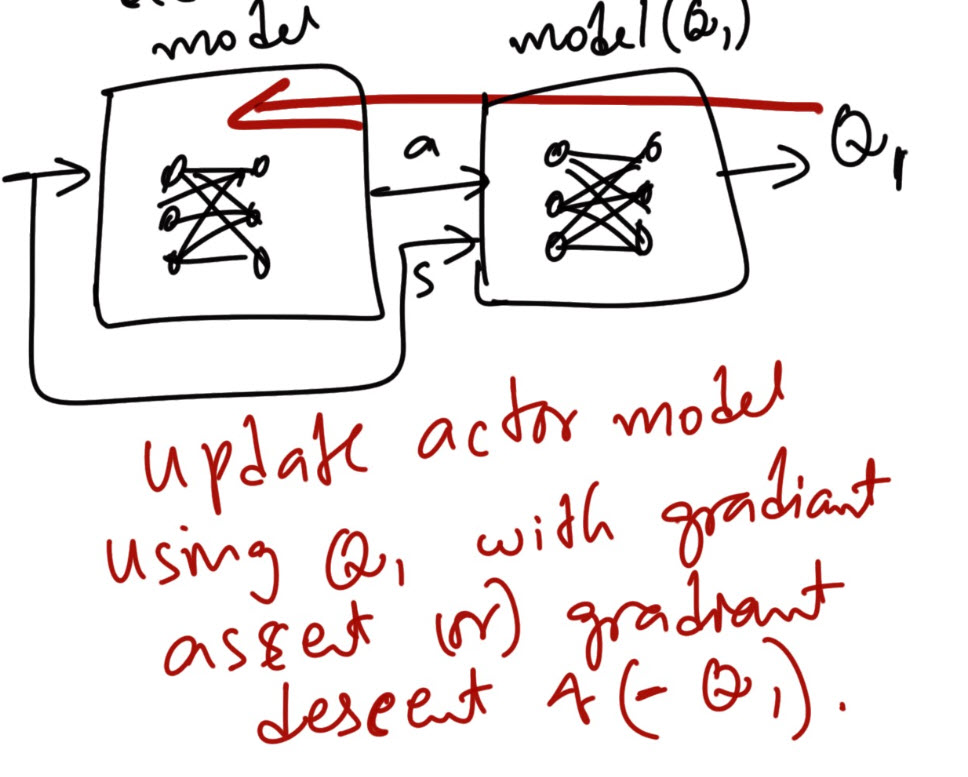 model
model (Q1)
a
s
Q1
update actor model
using Q1 with gradiant
asscent (or) gradiant
descent 4 (- Q1).